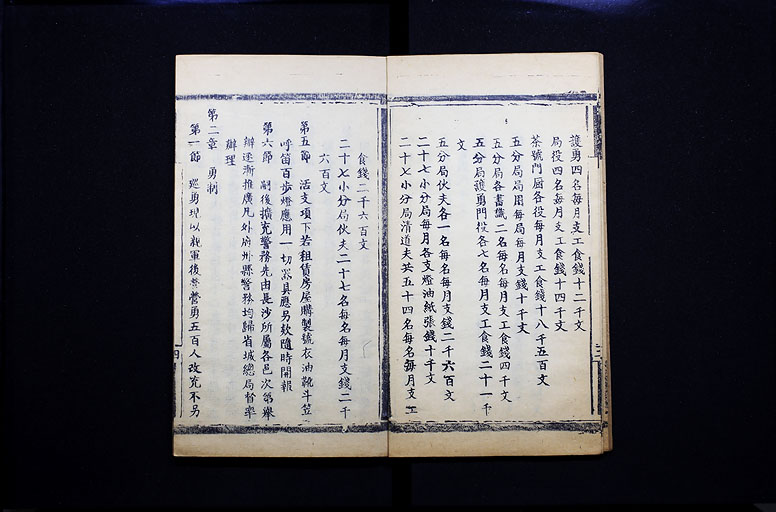 護勇四名每月支工食錢十二千文
局役四名每月支工食錢十四千文
茶號門厨各役每月支工食錢十八千五百文
五分局局用每局每月支錢十千文
五分局各書識二名每名每月支工食錢四千文
五分局護勇門役各七名每月支工食錢二十一千
文
五分局伙夫各一名每名每月支錢二千六百文
二十七小分局每月各支燈油紙張錢十千文
二十七小分局清道夫共五十四名每名每月支工
食錢二千六百文
二十七小分局伙夫二十七名每名每月支錢二千
六百文
第五節 活支項下若租賃房屋購製號衣油靴斗笠
呼笛百步燈應用一切器具應另欵隨時開報
第六節 嗣後擴充警務先由長沙所屬各邑次第舉
辦逐漸推廣凡外府州縣警務均歸省城總局督率
辦理
第二章 勇制
第一節 巡勇現以親軍後營營勇五百人改充不另
四